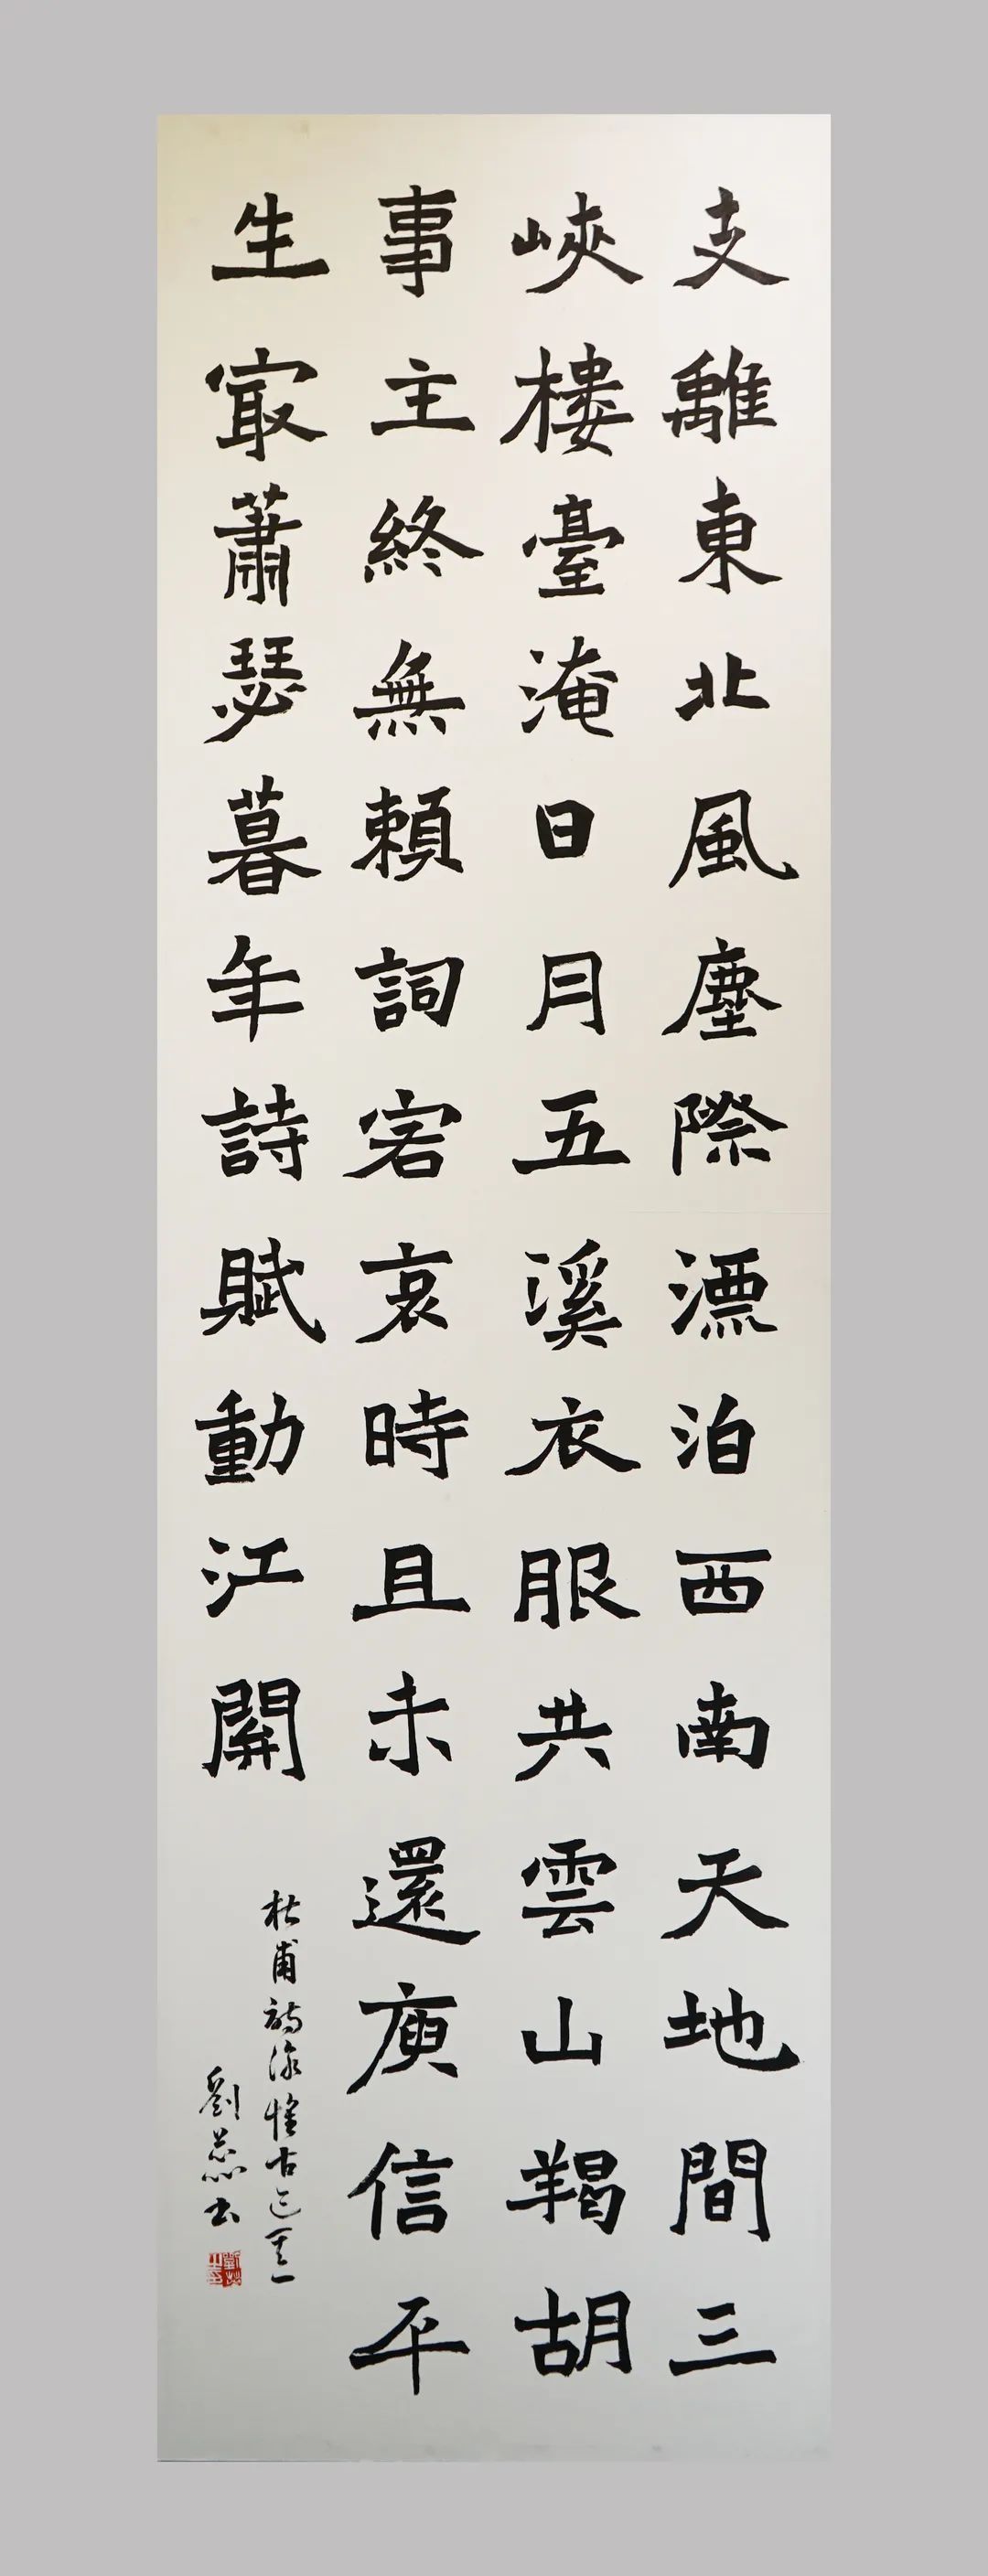 支離東北風塵際漂泊西南天地間三
峽樓臺淹日月五溪衣服共雲山羯胡
事主終無賴詞客哀時且未還庾信平
生冣蕭瑟暮年詩賦動江關
杜甫詩詠懷古迹其一
劉蕊书